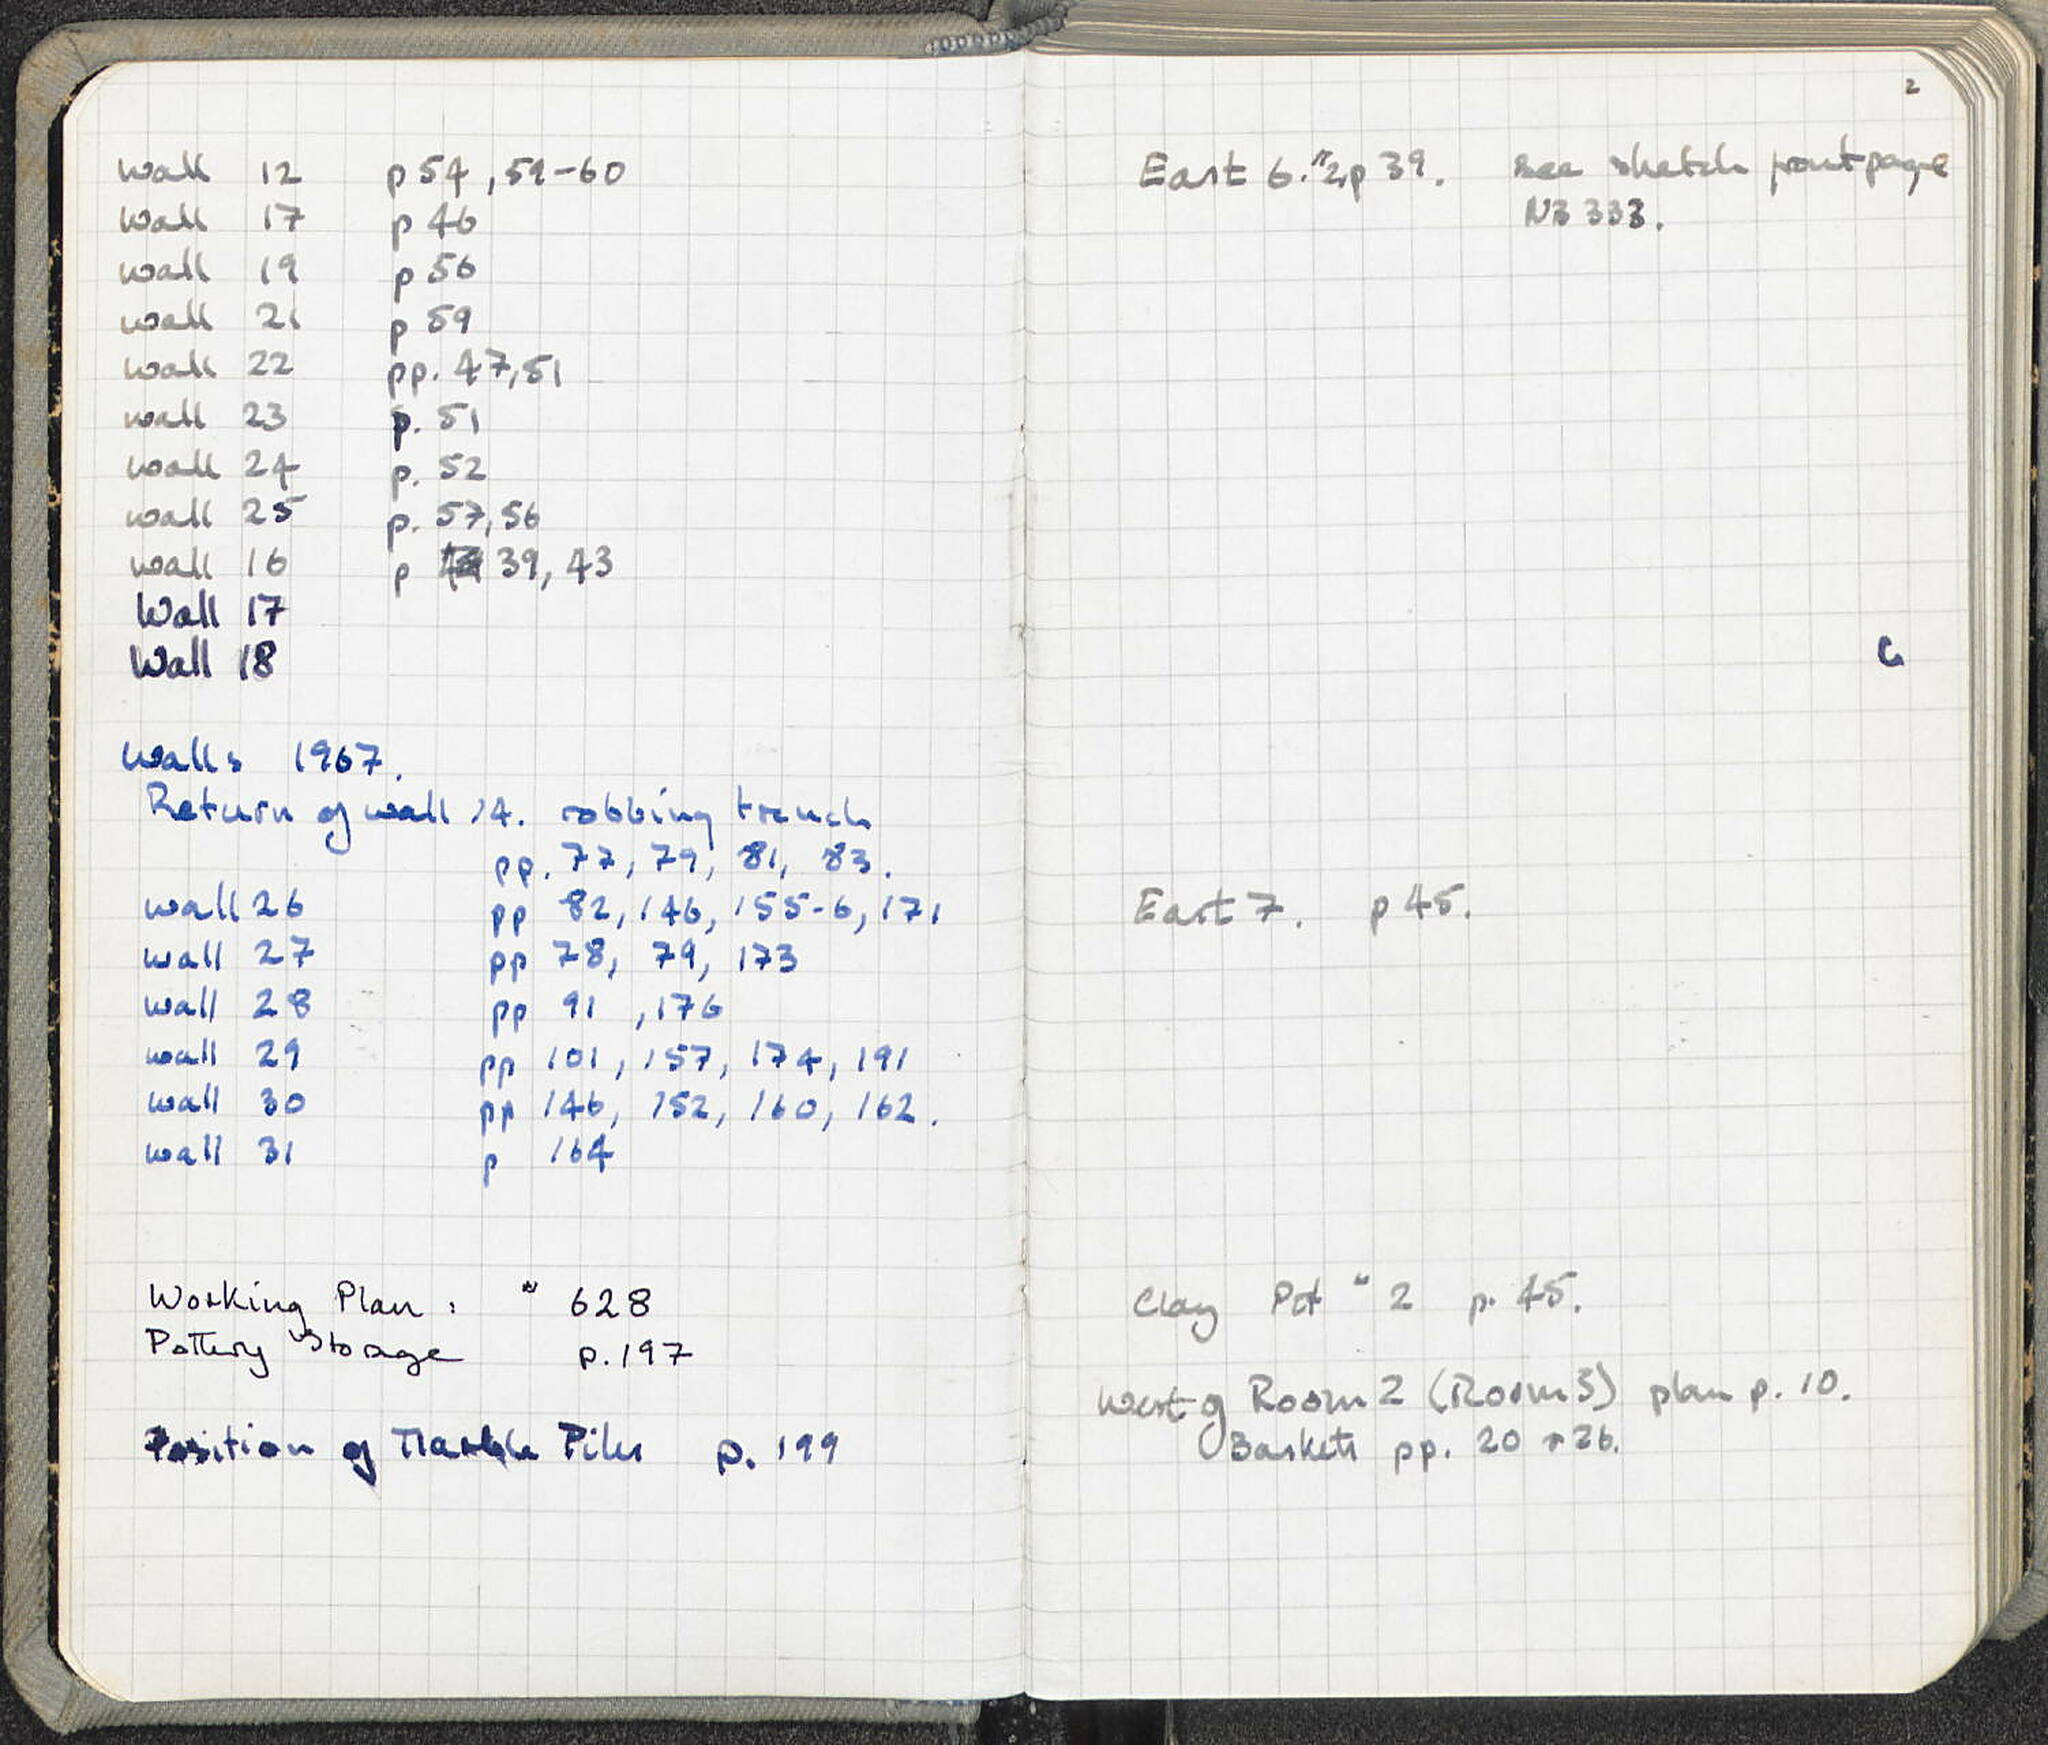 Wall 12 p 54, 59-60
Wall 17 p 46
Wall 19 p 56
Wall 21 p 59
Wall 22 pp. 47, 51
Wall 23 p. 51
Wall 24 p. 52
Wall 25 p. 57, 56
Wall 16 p 39, 43
Wall 17
Wall 18
Walls 1967.
Return of wall 14. robbing trench
pp. 77, 79, 81, 83.
Wall 26 pp 82, 146, 155-6, 171
Wall 27 pp 78, 79, 173
Wall 28 pp 91, 176
Wall 29 pp 101, 157, 174, 191
Wall 30 pp 146, 152, 160, 162.
Wall 31 p 164
Working Plan: " 628
Pottery Storage p. 197
Position of Marble Piles p. 199
2
East 6. "2, p 39. see sketch frontpage
NB 333.
C
East 7. p 45.
Clay Pit " 2 p. 45.
West of Room 2 (Room 3) plan p. 10.
Baskets pp. 20 + 26.